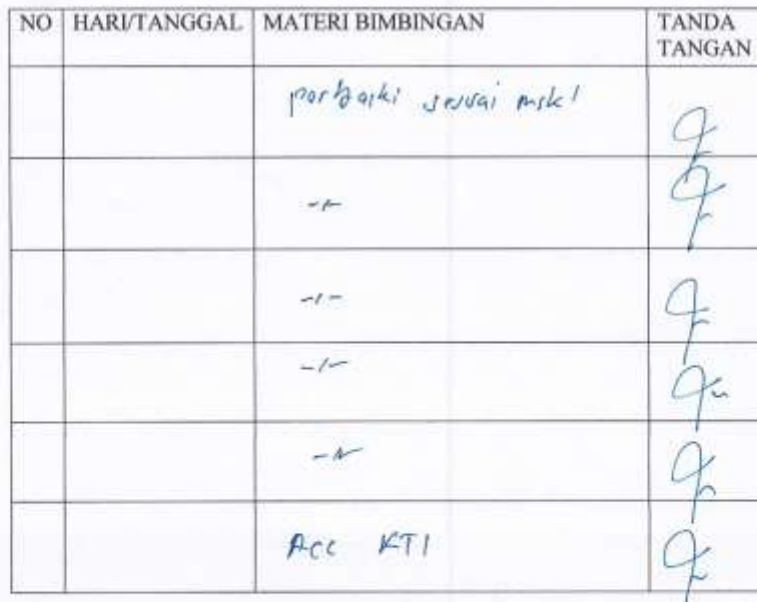 NO HARI/TANGGAL MATERI BIMBINGAN TANDA TANGAN
perbaiki sesuai
-"-
-"-
-"-
-"-
Acc KTI